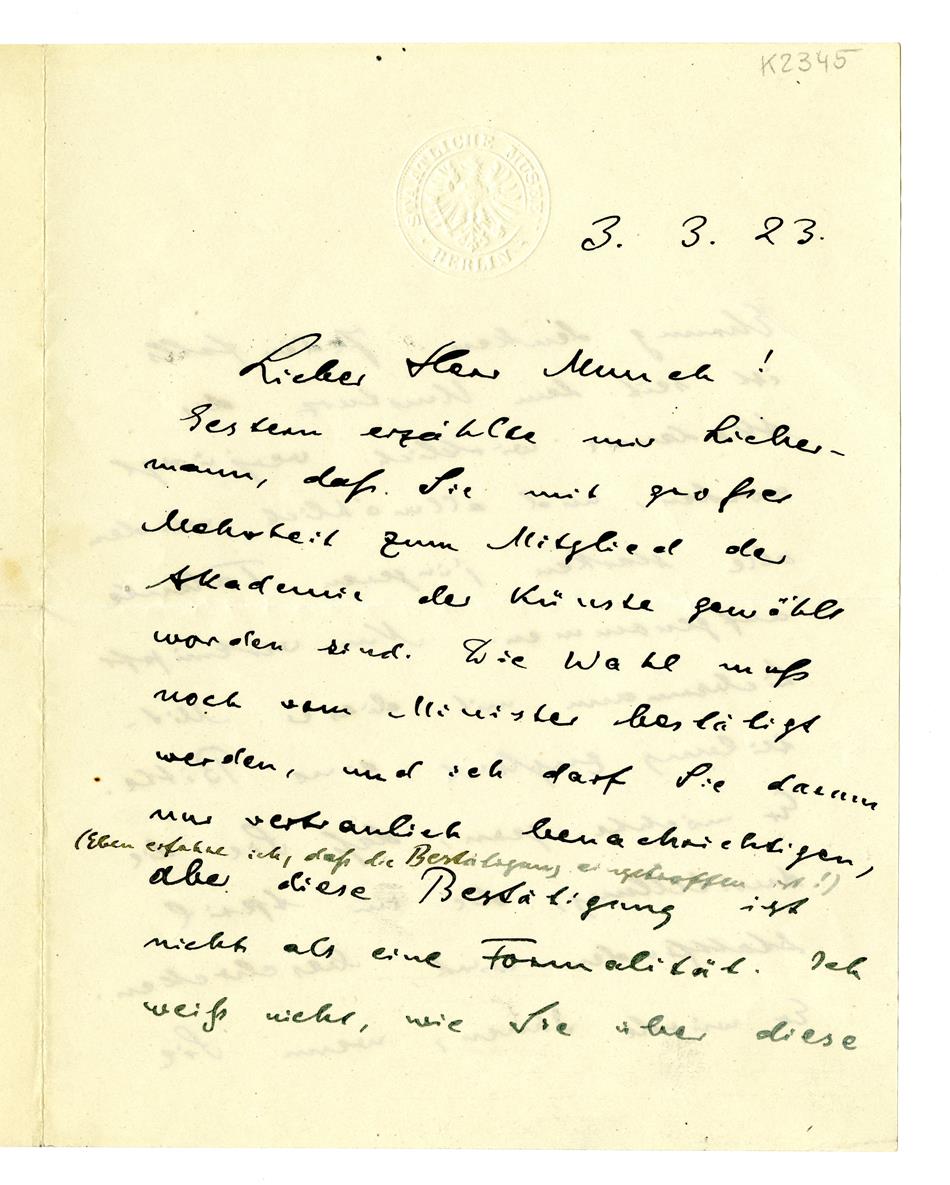 K2345
STAATLICHE MUSEEN
BERLIN
3. 3. 23.
Lieber Herr Munch!
Gestern erzählte mir Lieber-
mann, daß Sie mit großer
Mehrheit zum Mitglied der
Akademie der Künste gewählt
worden sind. Die Wahl muß
noch vom Minister bestätigt
werden, und ich darf Sie darum
nur vertraulich benachrichtigen,
(Eben erfahre ich, daß die Bestätigung eingetroffen ist!)
aber diese Bestätigung ist
nichts als eine Formalität. Ich
weiß nicht, wie Sie über diese